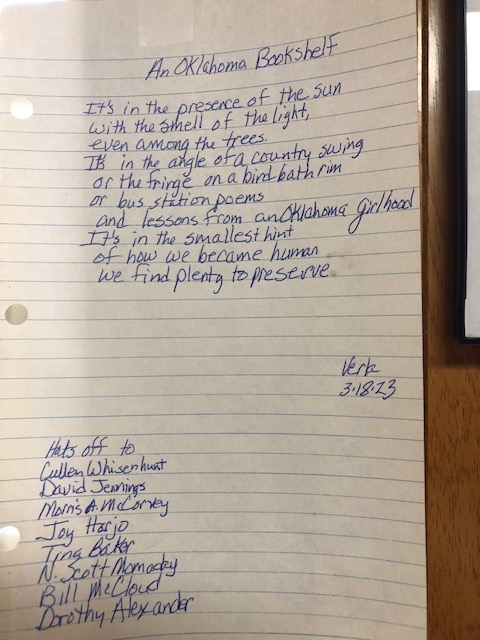 An Oklahoma Bookshelf
It's in the presence of the sun
with the smell of the light,
even among the trees.
It's in the angle of a country swing
or the fringe on a bird bath rim
or bus station poems
and lessons from an Oklahoma Girlhood
It's in the smallest hint
of how we became human
we find plenty to preserve.
Verla
3·18·23
Hats off to
Cullen Whisenhunt
David Jennings
Morris A. McCorvey
Joy Harjo
Tina Baker
N. Scott Momaday
Bill McCloud
Dorothy Alexander